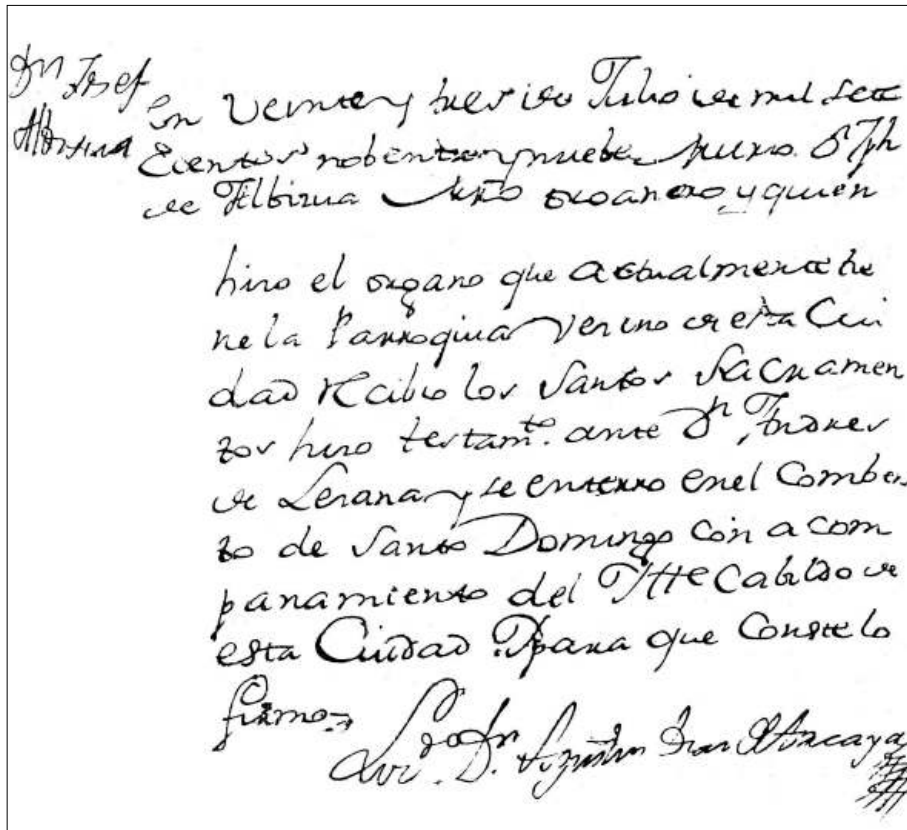 Dn Josef
Albisua
En veinte y tres de Julio de mil sete
Cientos nobenta y nuebe, murio Dn Jph
de Albisua Mro organero, y quien
hizo el organo que actualmente tie
ne la Parroquia vecino de esta Ciu
dad recibio los Santos Sacramen
tos hizo testamto. ante Dn Andres
de Lezana y se enterro enel Comben
to de Santo Domingo con acom
panamiento del Ytte Cabildo de
esta Ciudad. Y para que Conste lo
firmo
Dn